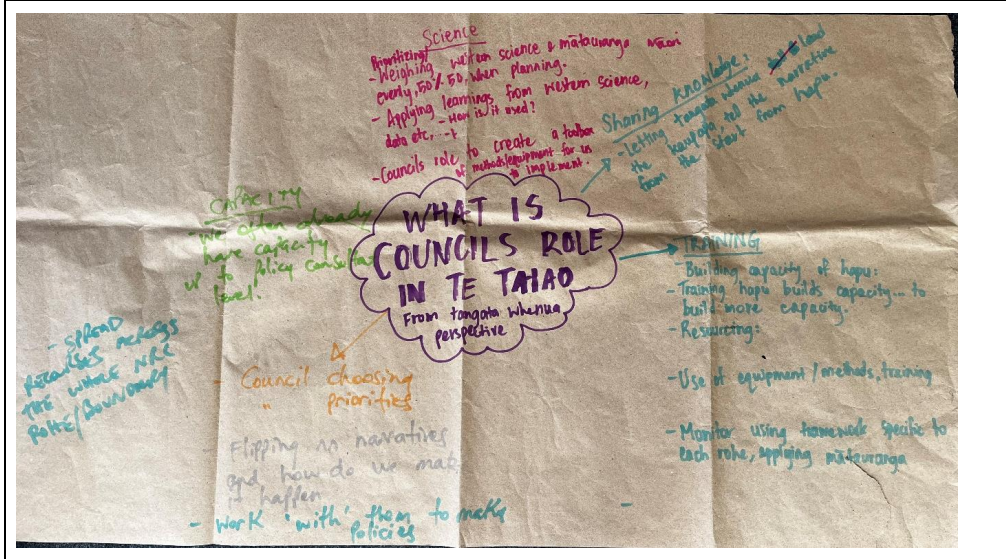 Science
Prioritizing/
- Weighing western science & mātauranga māori
evenly, 50%50, when planning.
- Applying learnings from western science,
data etc, ...
- How is it used?
- Councils role to create a toolbox
of methods/equipment for us
to implement.
Sharing knowledge:
- Letting tangata whenua lead
the kaupapa, tell the narrative
from the start from hapu.
CAPACITY
- We often already
have capacity
up to policy consultant
level.
WHAT IS
COUNCILS ROLE
IN TE TAIAO
From tangata whenua
perspective
TRAINING
- Building capacity of hapu:
- Training hapu builds capacity... to
build more capacity.
- Resourcing:
- Use of equipment/methods, training
- Monitor using framework specific to
each rohe, applying mātauranga
- SPREAD
RECOURSES ACROSS
THE WHOLE NRC
ROHE/BOUNDARY
- Council choosing
" priorities
Flipping narratives
and how do we make
it happen
- Work 'with' them to make
policies
-